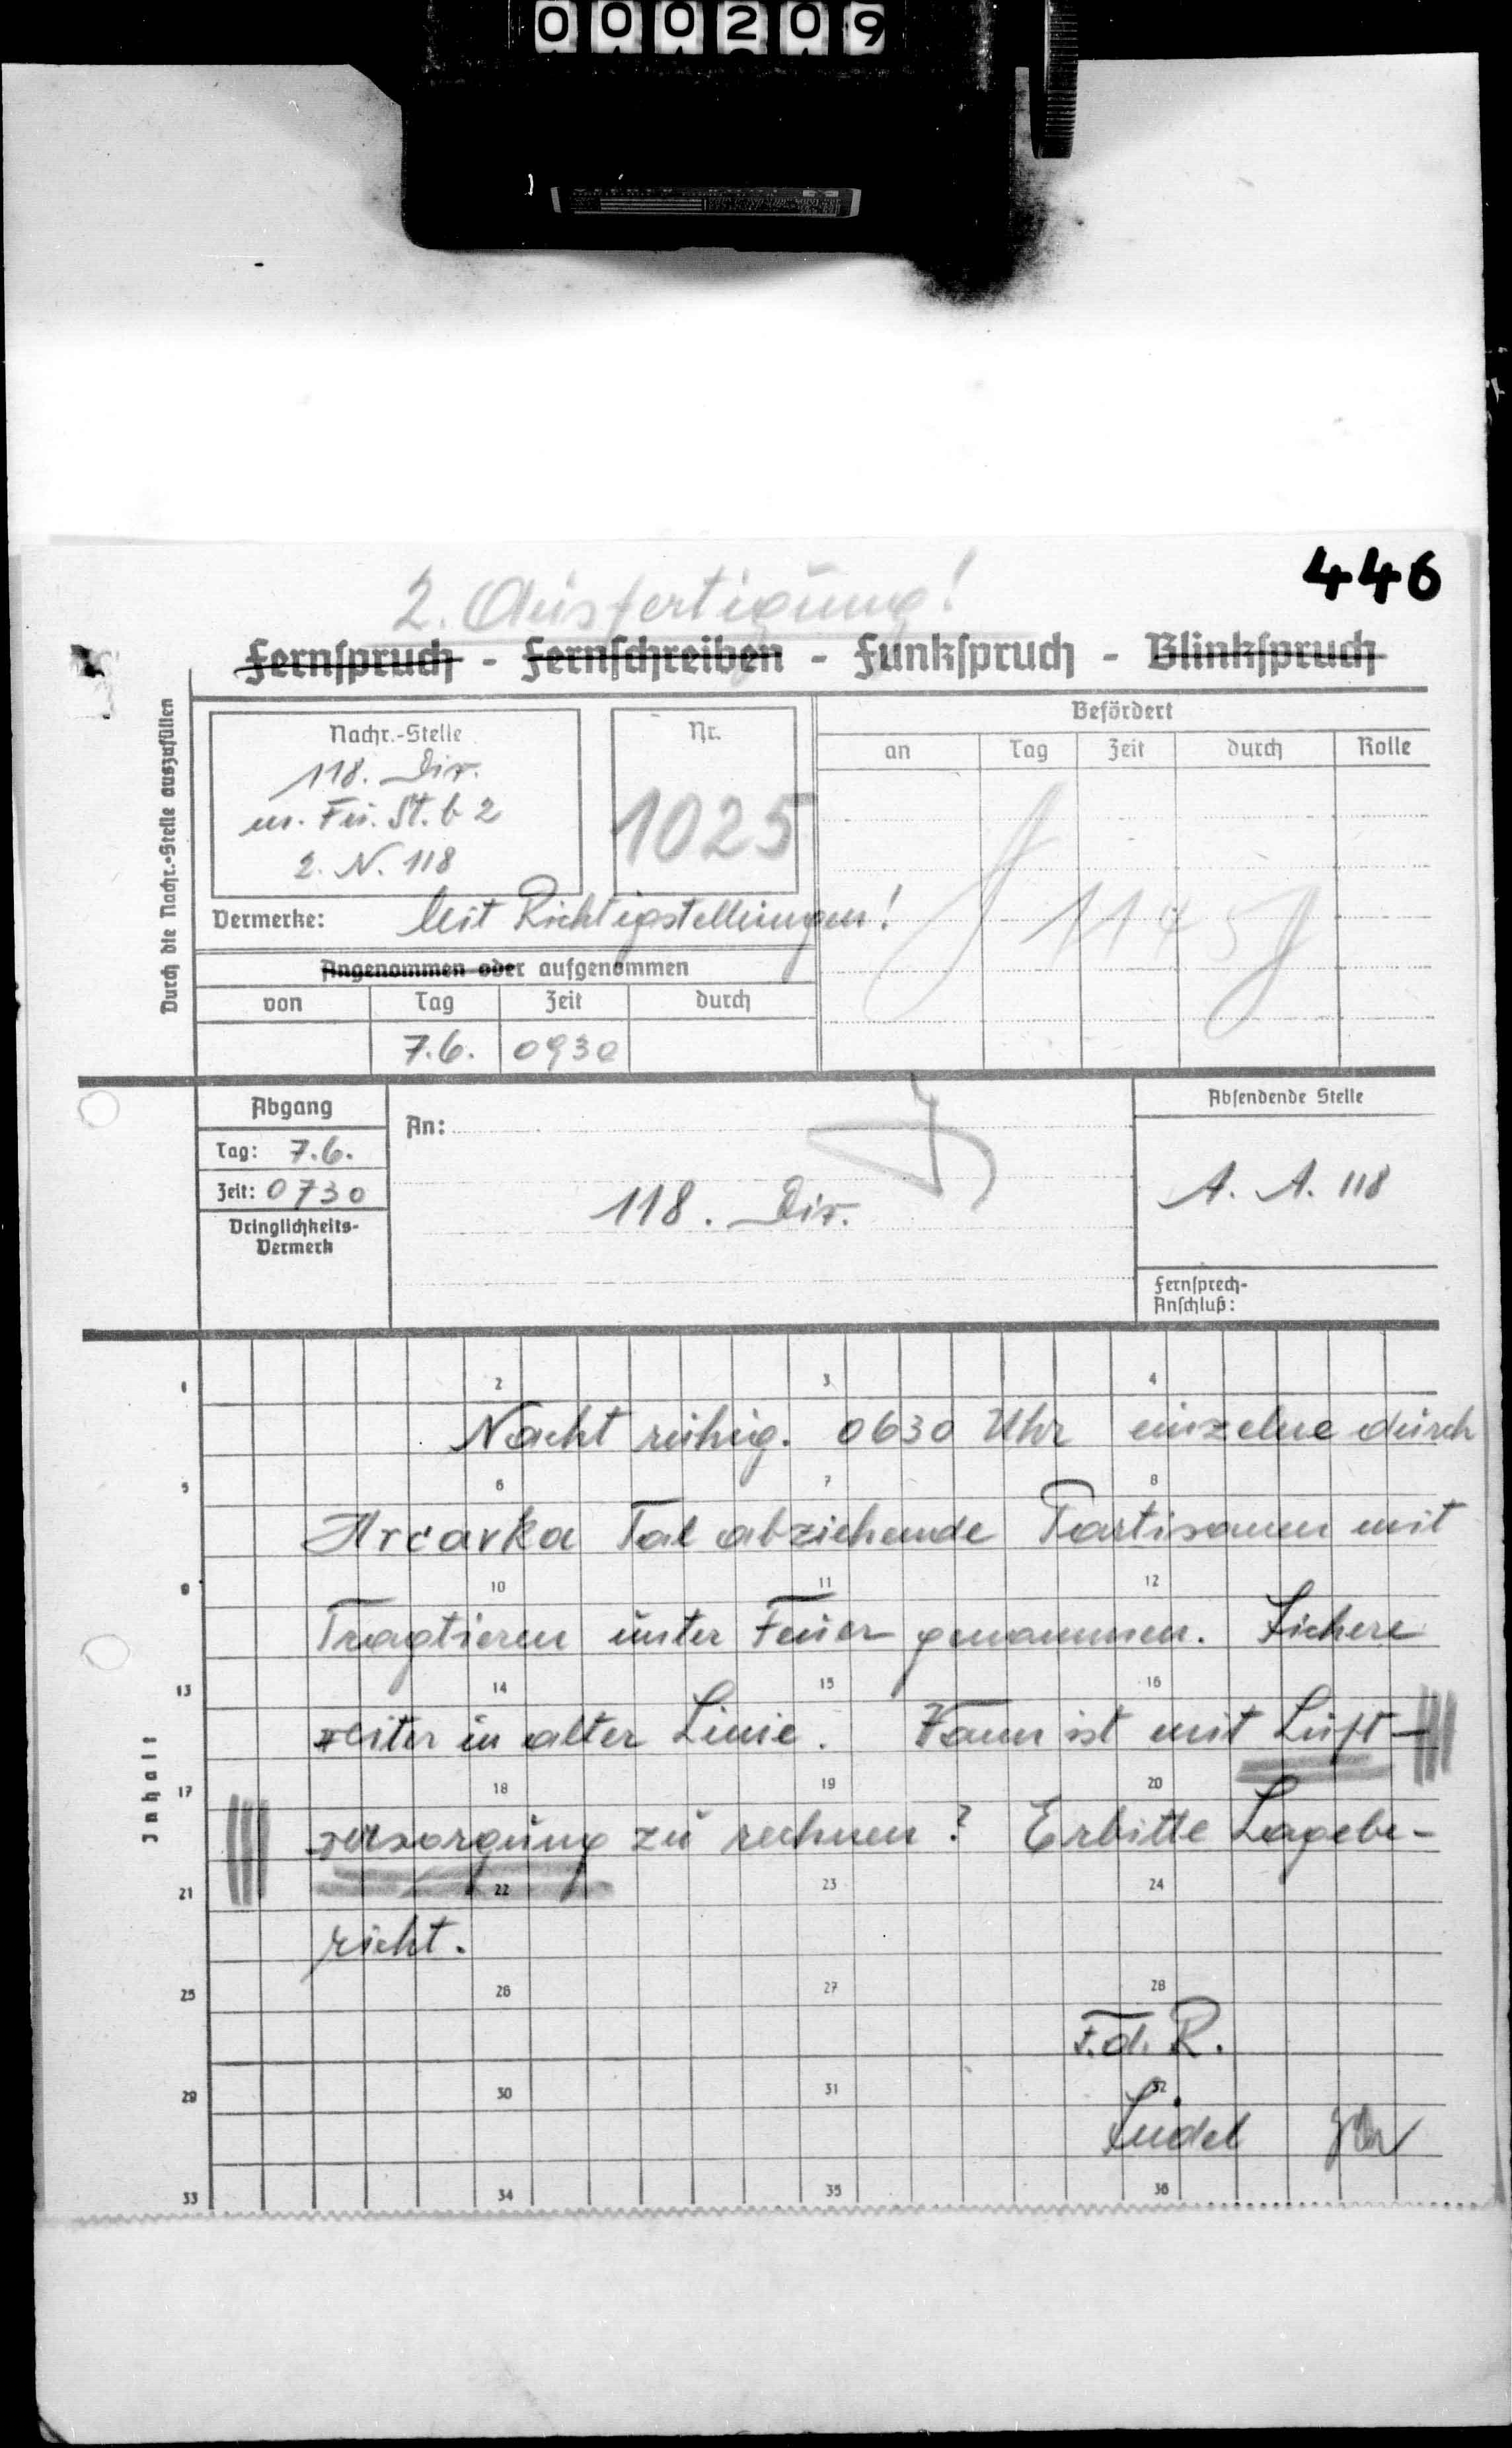 000209
446
2. Ausfertigung!
Fernspruch - Fernschreiben - Funkspruch - Blinkspruch
Durch die Nachr.-Stelle auszufüllen
Nachr.-Stelle
118. Div.
m. Fu. St. b 2
2. N. 118
Nr.
1025
Befördert
an Tag Zeit durch Rolle
1145
Vermerke: Mit Richtigstellungen!
Angenommen oder aufgenommen
von Tag Zeit durch
7.6. 0930
Abgang
Tag: 7.6.
Zeit: 0730
Dringlichkeits-
Vermerk
An:
118. Div.
Absendende Stelle
A. A. 118
Fernsprech-
Anschluß:
Inhalt
1 2 3 4
Nacht ruhig. 0630 Uhr einzelne durch
5 6 7 8
Hrcavka Tal abziehende Partisanen mit
9 10 11 12
Tragtieren unter Feuer genommen. Sichere
13 14 15 16
weiter in alter Linie. Wann ist mit Luft-
17 18 19 20
versorgung zu rechnen? Erbitte Lagebe-
21 22 23 24
richt.
25 26 27 28
F.d.R.
29 30 31 32
33 34 35 36